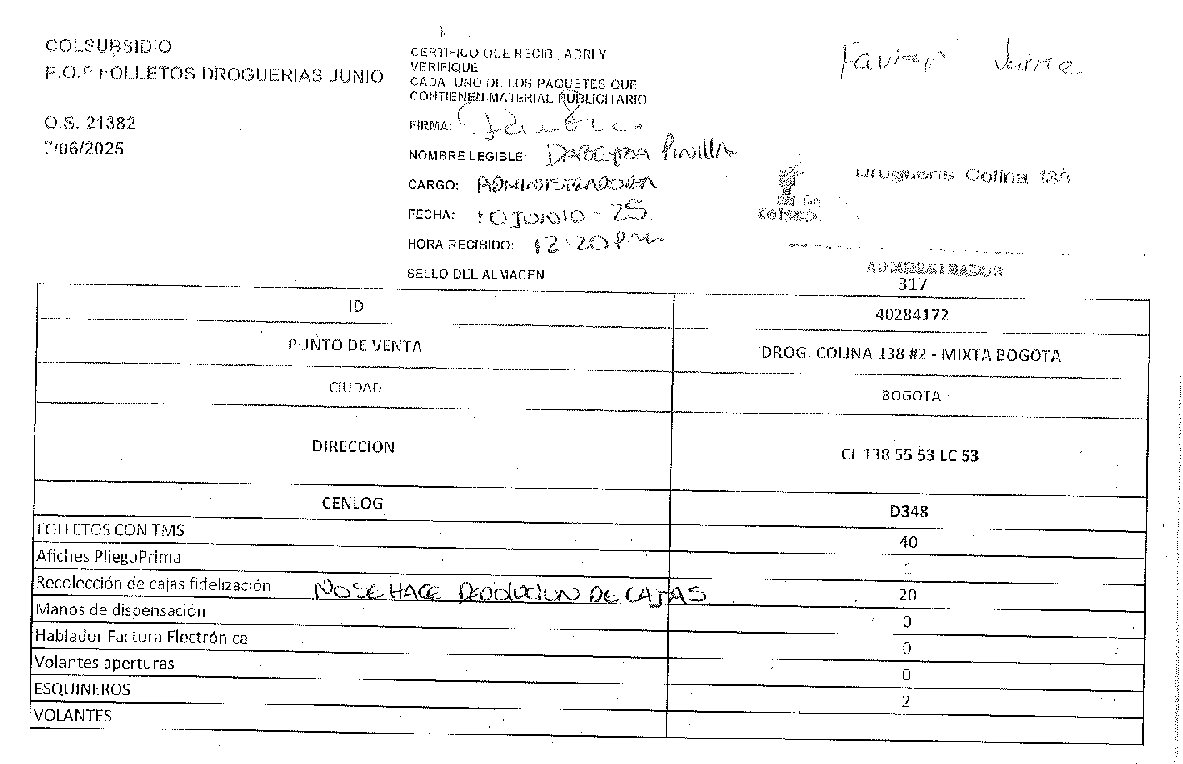 COLSUBSIDIO
P.O.P FOLLETOS DROGUERIAS JUNIO
O.S. 21382
7/06/2025
CERTIFICO QUE RECIBI, ABRI Y
VERIFIQUE
CADA UNO DE LOS PAQUETES QUE
CONTIENEN MATERIAL PUBLICITARIO
FIRMA:
NOMBRE LEGIBLE: Pinilla
CARGO: ADMINISTRADORA
FECHA: 10 JUNIO - 25
HORA RECIBIDO: 12:20 Pm
SELLO DEL ALMACEN
Droguería Colina 138
ADMINISTRADOR
317
ID 40284172
PUNTO DE VENTA DROG. COLINA 138 #2 - MIXTA BOGOTA
CIUDAD BOGOTA
DIRECCION CL 138 55 53 LC 53
CENLOG D348
FOLLETOS CON TMS 40
Afiches PliegoPrima 1
Recolección de cajas fidelización NO SE HACE DEVOLUCION DE CAJAS 20
Manos de dispensación 0
Hablador Factura Electrónica 0
Volantes aperturas 0
ESQUINEROS 2
VOLANTES